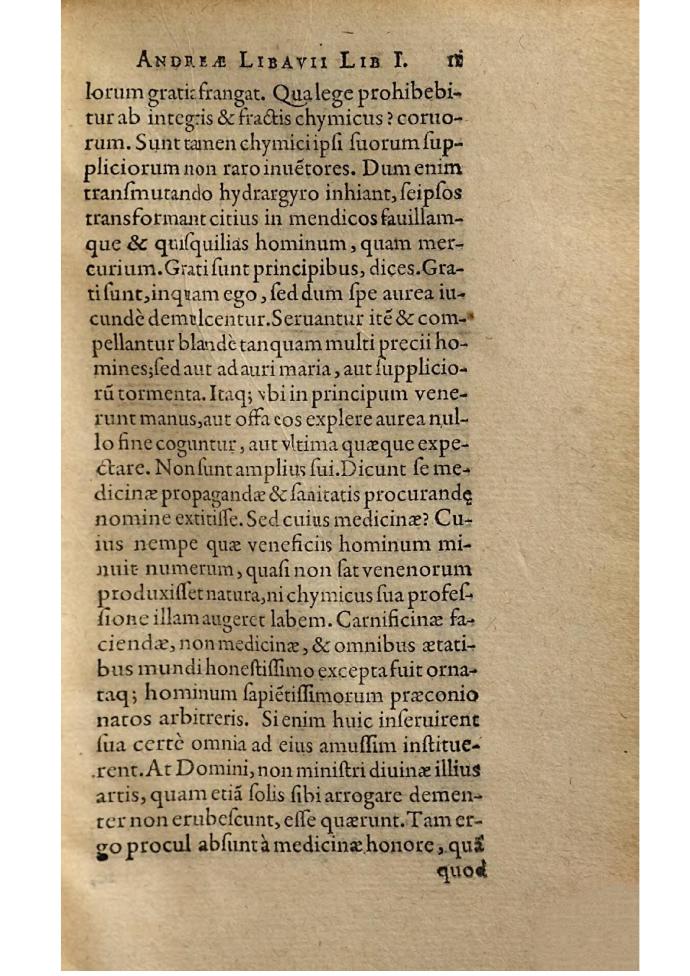 ANDREÆ LIBAVII LIB I. 11
lorum gratis frangat. Qua lege prohibebi-
tur ab integris & fractis chymicus? coruo-
rum. Sunt tamen chymici ipſi ſuorum ſup-
pliciorum non raro inuẽtores. Dum enim
tranſmutando hydrargyro inhiant, ſeipſos
transformant citius in mendicos fauillam-
que & quiſquilias hominum, quam mer-
curium. Grati ſunt principibus, dices. Gra-
ti ſunt, inquam ego, ſed dum ſpe aurea iu-
cundè demulcentur. Seruantur itẽ & com-
pellantur blandè tanquam multi precii ho-
mines; ſed aut ad auri maria, aut ſupplicio-
rũ tormenta. Itaq; vbi in principum vene-
runt manus, aut offa eos explere aurea nul-
lo fine coguntur, aut vltima quæque expe-
ctare. Non ſunt amplius ſui. Dicunt ſe me-
dicinæ propagandæ & ſanitatis procurandę
nomine extitiſſe. Sed cuius medicinæ? Cu-
ius nempe quæ veneficiis hominum mi-
nuit numerum, quaſi non ſat venenorum
produxiſſet natura, ni chymicus ſua profeſ-
ſione illam augeret labem. Carnificinæ fa-
ciendæ, non medicinæ, & omnibus ætati-
bus mundi honeſtiſſimo excepta fuit orna-
taq; hominum ſapiẽtiſſimorum præconio
natos arbitreris. Si enim huic inſeruirent
ſua certè omnia ad eius amuſſim inſtitue-
rent. At Domini, non miniſtri diuinæ illius
artis, quam etiã ſolis ſibi arrogare demen-
ter non erubeſcunt, eſſe quærunt. Tam er-
go procul abſunt à medicinæ honore, quã
quod